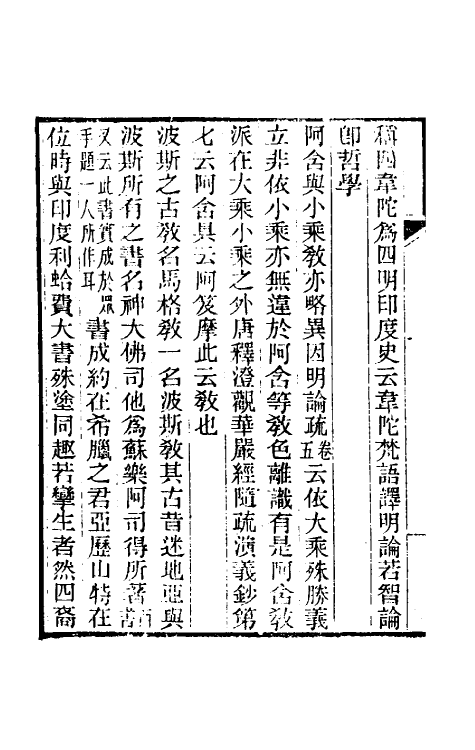 稱四韋陀爲四明印度史云韋陀梵語譯明論若智論
卽哲學
阿舍與小乘敎亦略異因明論疏卷五云依大乘殊勝義
立非依小乘亦無違於阿舍等敎色離識有是阿舍敎
派在大乘小乘之外唐釋澄觀華嚴經隨疏演義鈔第
七云阿舍具云阿笈摩此云敎也
波斯之古敎名馬格敎一名波斯敎其古昔迷地亞與
波斯所有之書名神大佛司他爲蘇樂阿司得所著
又云此書實成於眾
手題一人所作耳
書成約在希臘之君亞歷山特在
位時與印度利蛤費大書殊塗同趣若孿生者然四裔